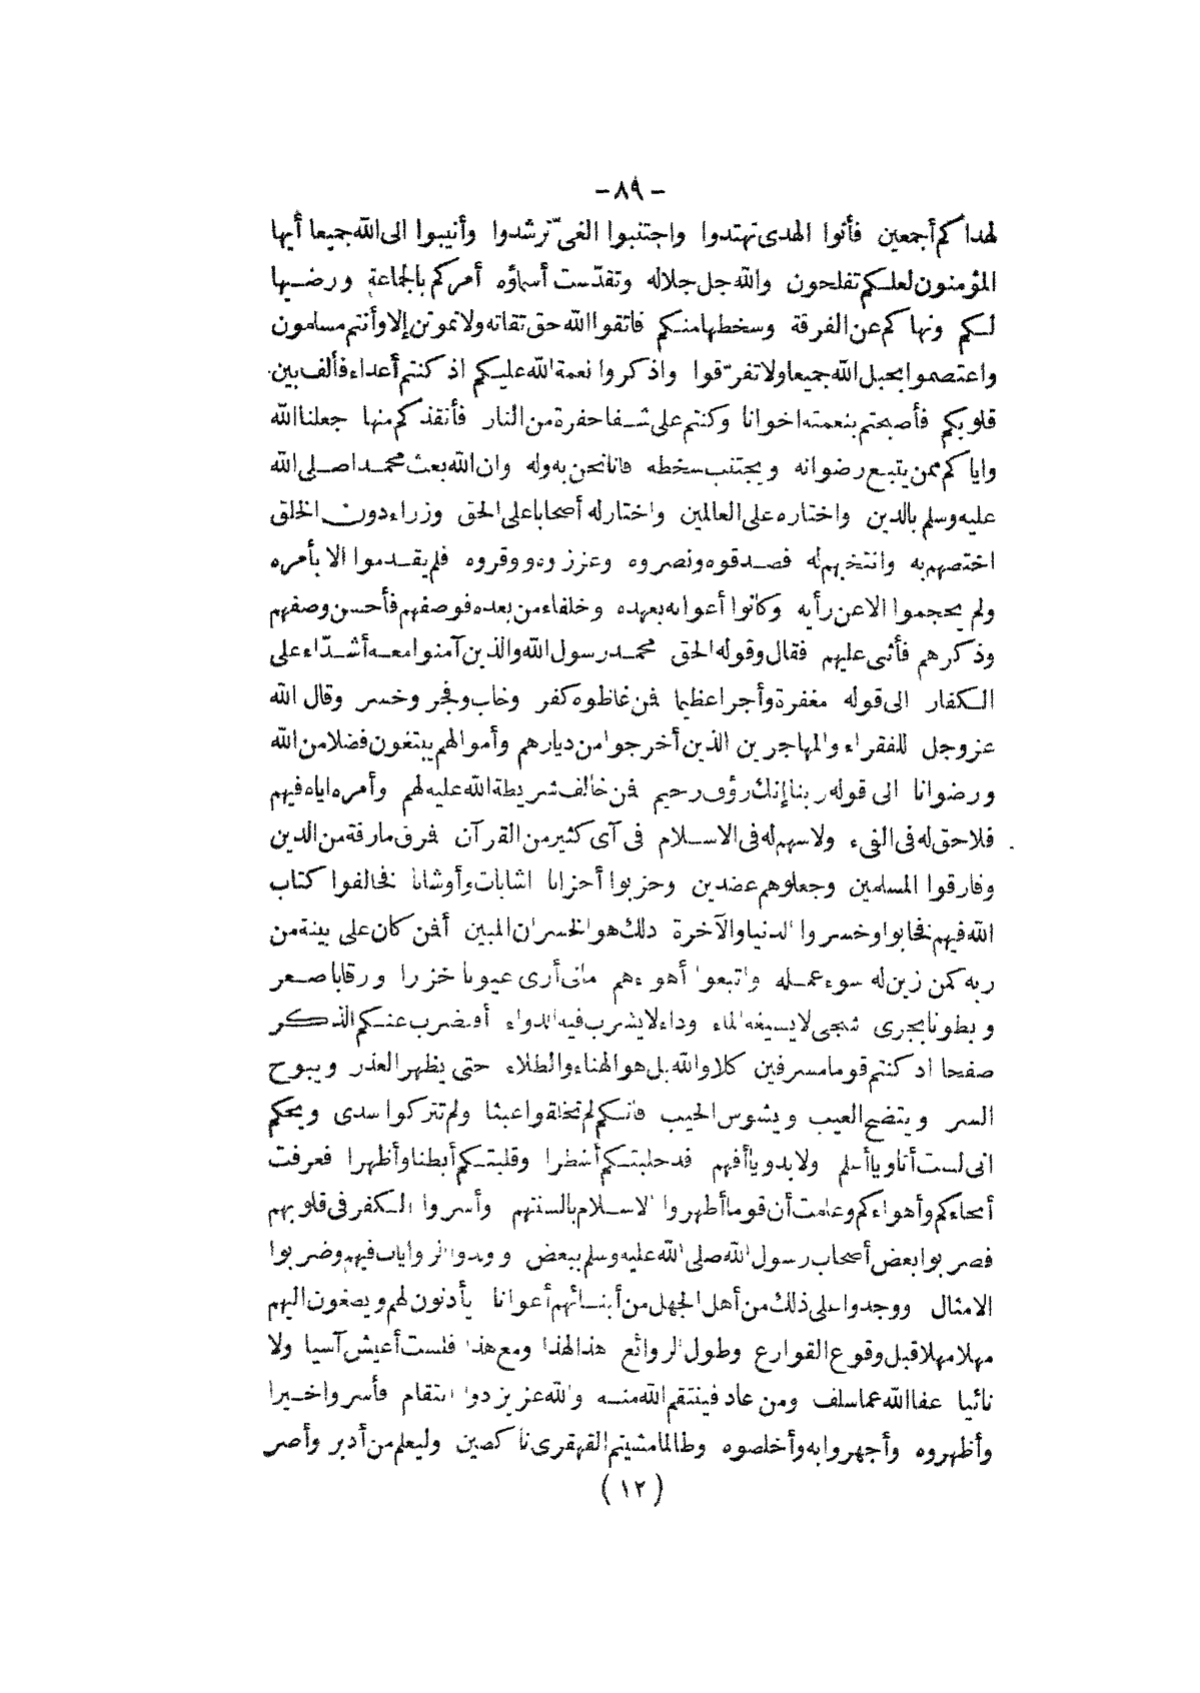 - ٨٩ -
لهداكم أجمعين فأتوا الهدى تهتدوا واجتنبوا الغىّ ترشدوا وأنيبوا الى الله جميعا أيها
المؤمنون لعلكم تفلحون والله جل جلاله وتقدّست أسماؤه أمركم بالجماعة ورضيها
لكم ونهاكم عن الفرقة وسخطها منكم فاتقوا الله حق تقاته ولا تموتن إلا وأنتم مسلمون
واعتصموا بحبل الله جميعا ولا تفرّقوا واذكروا نعمة الله عليكم اذ كنتم أعداء فألف بين
قلوبكم فأصبحتم بنعمته اخوانا وكنتم على شفا حفرة من النار فأنقذكم منها جعلنا الله
واياكم ممن يتبع رضوانه ويجتنب سخطه فانا نحن به وله وان الله بعث محمدا صلى الله
عليه وسلم بالدين واختاره على العالمين واختار له أصحابا على الحق وزراء دون الخلق
اختصهم به وانتخبهم له فصدقوه ونصروه وعززوه ووقروه فلم يقدموا الا بأمره
ولم يحجموا الا عن رأيه وكانوا أعوانه بعهده وخلفاء من بعده فوصفهم فأحسن وصفهم
وذكرهم فأثنى عليهم فقال وقوله الحق محمد رسول الله والذين آمنوا معه أشدّاء على
الكفار الى قوله مغفرة وأجرا عظيما فمن غاظوه كفر وخاب وفجر وخسر وقال الله
عز وجل للفقراء والمهاجرين الذين أخرجوا من ديارهم وأموالهم يبتغون فضلا من الله
ورضوانا الى قوله ربنا إنك رؤف رحيم فمن خالف شريطة الله عليه لهم وأمره اياه فيهم
فلا حق له فى الفىء ولا سهم له فى الاسلام فى آى كثير من القرآن فمرق مارقة من الدين
وفارقوا المسلمين وجعلوهم عضدين وحزبوا أحزابا اشابات وأوشابا فخالفوا كتاب
الله فيهم فخابوا وخسروا الدنيا والآخرة ذلك هو الخسران المبين أفمن كان على بينة من
ربه كمن زين له سوء عمله واتبعوا أهواءهم مالى أرى عيونا خزرا ورقابا صعر
وبطونا بجرى شجى لا يسيغه الماء وداء لا يشرب فيه الدواء أفنضرب عنكم الذكر
صفحا اذ كنتم قوما مسرفين كلا والله بل هو الهناء والطلاء حتى يظهر العذر ويبوح
السر ويتضح العيب ويشوس الحيب فانكم لم تخلقوا عبثا ولم تتركوا سدى ويحكم
انى لست أتاويا أعلم ولا بدويا أفهم قد حلبتكم أشطرا وقلبتكم أبطنا وأظهرا فعرفت
أنحاءكم وأهواءكم وعلمت أن قوما أظهروا الاسلام بألسنتهم وأسروا الكفر فى قلوبهم
فضربوا بعض أصحاب رسول الله صلى الله عليه وسلم ببعض وولدوا الروايات فيهم وضربوا
الامثال ووجدوا على ذلك من أهل الجهل من أبنائهم أعوانا يأذنون لهم ويصغون اليهم
مهلا مهلا قبل وقوع القوارع وطول الروائع هذا لهذا ومع هذا فلست أعيش آسيا ولا
نائيا عفا الله عما سلف ومن عاد فينتقم الله منه والله عزيز ذو انتقام فأسروا خيرا
وأظهروه وأجهروا به وأخلصوه وطالما مشيتم القهقرى ناكصين وليعلم من أدبر وأصر
( ١٢ )